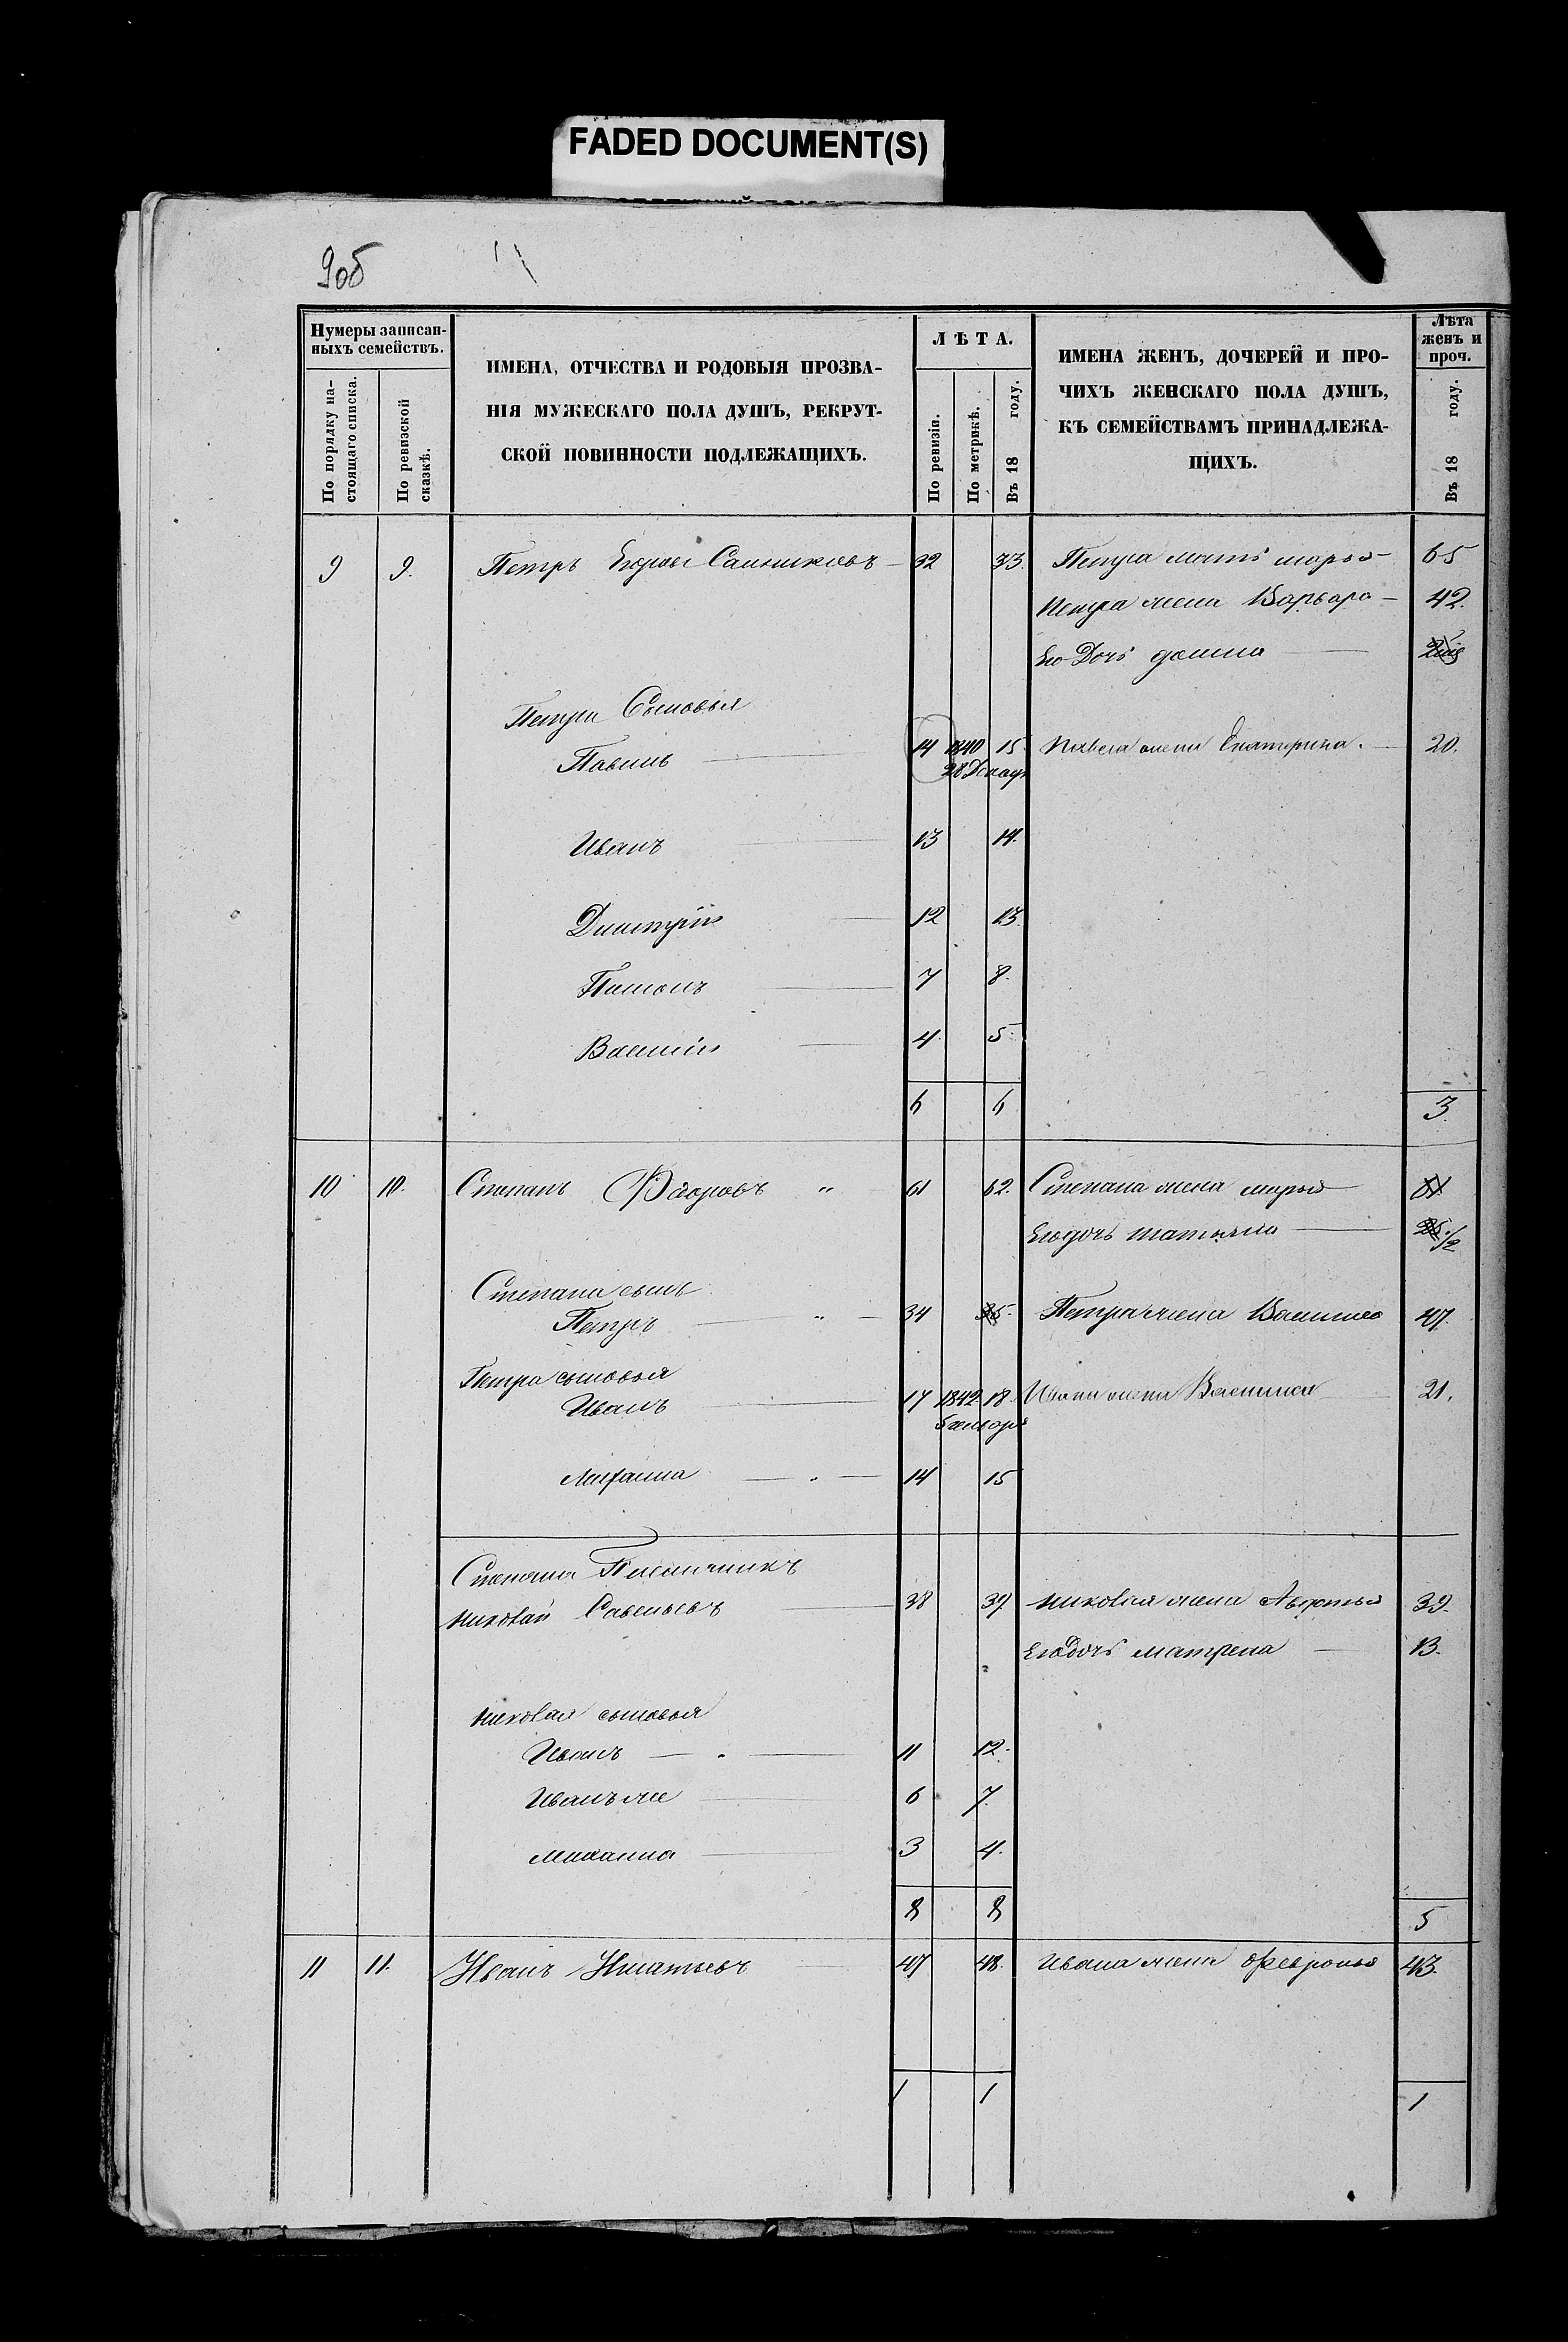 FADED DOCUMENT(S)
9об
Нумеры записан-
ныхъ семействъ.
По порядку на-
стоящаго списка.
По ревизской
сказкѣ.
ИМЕНА, ОТЧЕСТВА И РОДОВЫЯ ПРОЗВА-
НІЯ МУЖЕСКАГО ПОЛА ДУШЪ, РЕКРУТ-
СКОЙ ПОВИННОСТИ ПОДЛЕЖАЩИХЪ.
ЛѢТА.
По ревизіи.
По метрикѣ.
Въ 18 году.
ИМЕНА ЖЕНЪ, ДОЧЕРЕЙ И ПРО-
ЧИХЪ ЖЕНСКАГО ПОЛА ДУШЪ,
КЪ СЕМЕЙСТВАМЪ ПРИНАДЛЕЖА-
ЩИХЪ.
Лѣта
женъ и
проч.
Въ 18 году.
9 9. Петръ Санниковъ 32 33. Петра мать марья 65
Петра жена Варвара 42.
Его Дочь домна
Петра Сыновья
Павилъ 14 1840 15. Павела жена Екатерина. 20.
28 Декаря
Иванъ 13 14.
Дмитрій 12 13
Патапъ 7 8.
Василій 4. 5.
6 6 3.
10 10. Степанъ Фдоровъ " 61 62. Степана жена марья 61
Его дочь татьяна
Степана сынъ
Петръ " 34 35. Петра жена Василиса 47.
Петра сыновья
Иванъ 17 1842 18. Ивана жена Василиса 21.
5 генваря
Михаила 14 15
Степана Племянникъ
николай Савельевъ 38 39 николая жена Авдотья 39.
Его дочь матрена 13.
николая сыновья
Иванъ 11 12.
Иванъ же 6 7.
михаила 3 4.
8 8 5
11 11. Иванъ Игнатьевъ 47 48. ивана жена февронья 43.
1 1 1